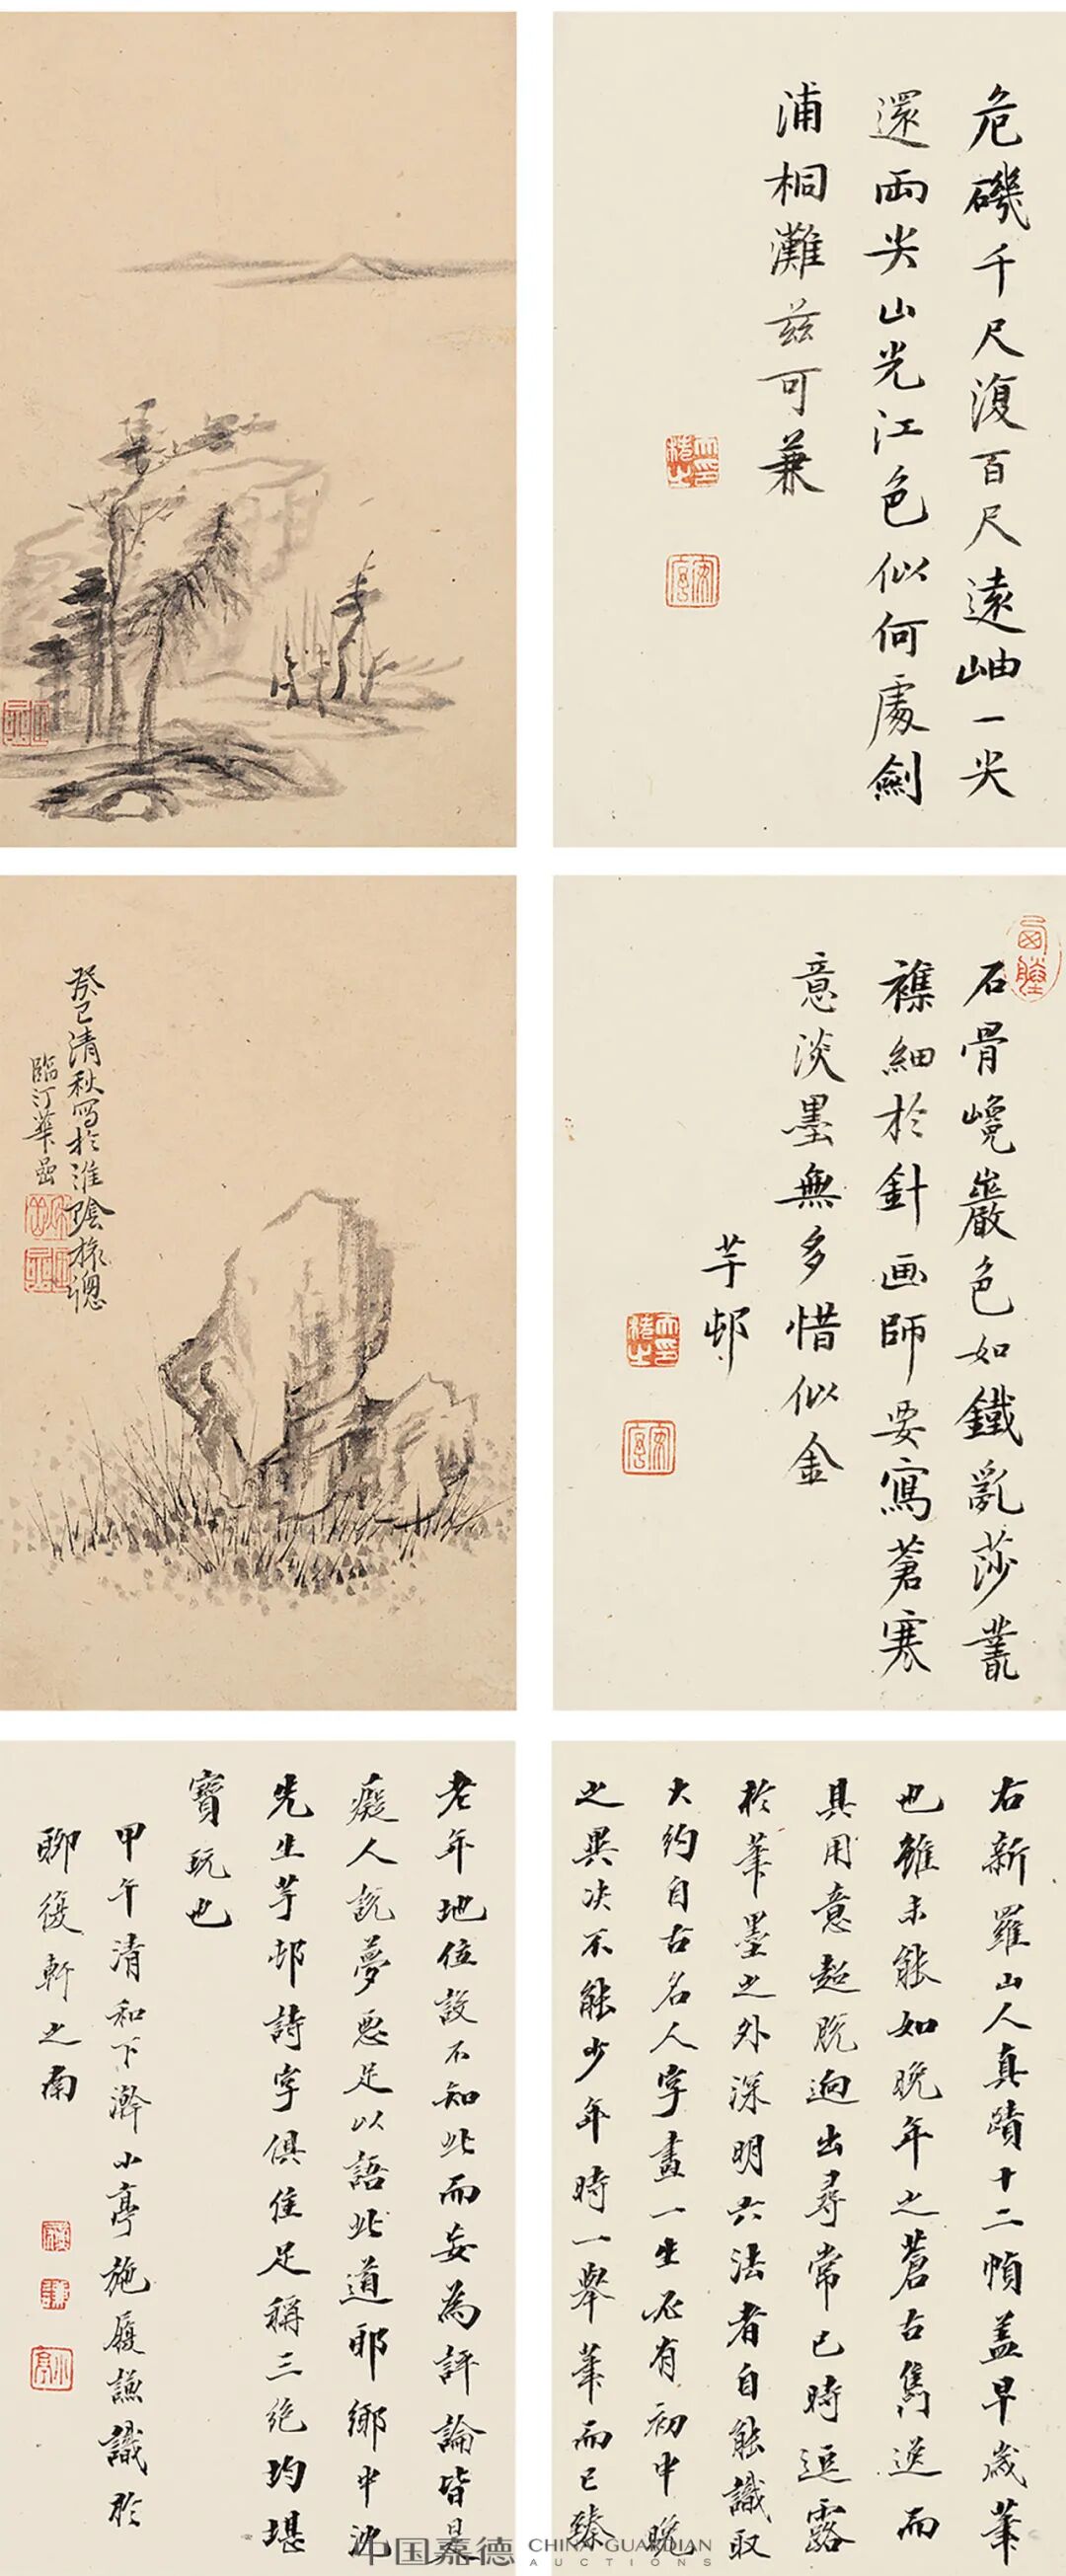 危磯千尺復百尺遠岫一尖
還兩尖山光江色似何處劍
浦桐灘茲可兼
石骨巉巖色如鐵亂莎叢
襍細於針画師要寫蒼寒
意淡墨無多惜似金
芋邨
癸巳清秋寫於淮陰旅窗
臨汀華嵒
右新羅山人真蹟十二幀蓋早歲筆
也雖未能如晚年之蒼古雋逸而
具用意超脫迥出尋常已時逗露
於筆墨之外深明六法者自能識取
大約自古名人字畫一生必有初中晚
之異决不能少年時一舉筆而已臻
老年地位設不知此而妄為評論皆是
癡人說夢惡足以語此道耶鄉中沈
先生芋邨詩字俱佳足稱三絕均堪
寶玩也
甲午清和下澣小亭施履謙識於
聊復軒之南
中国嘉德 CHINA GUARDIAN
AUCTIONS